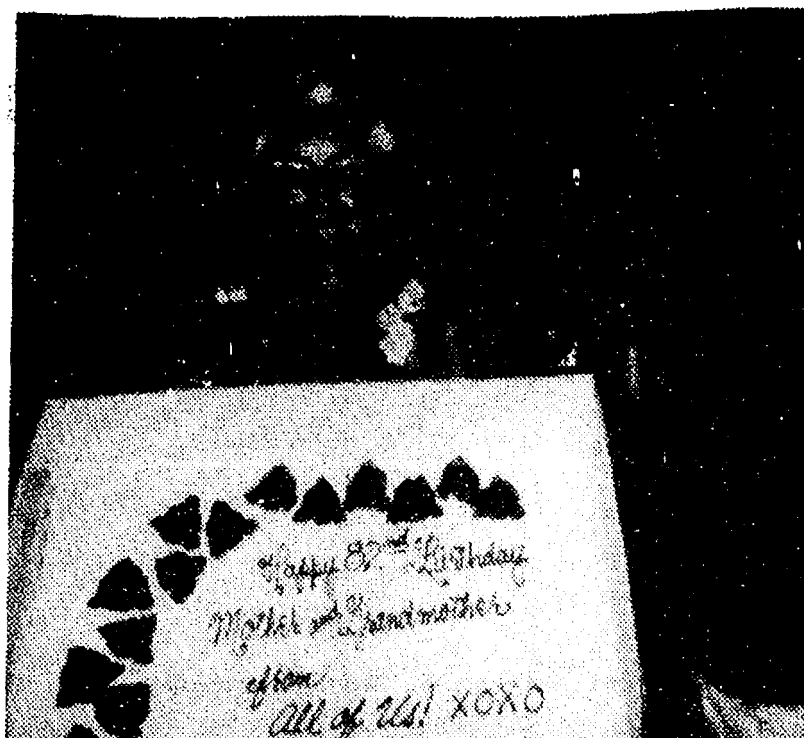 Happy 82nd Birthday
Mother and Grandmother
from
All of Us! XOXO